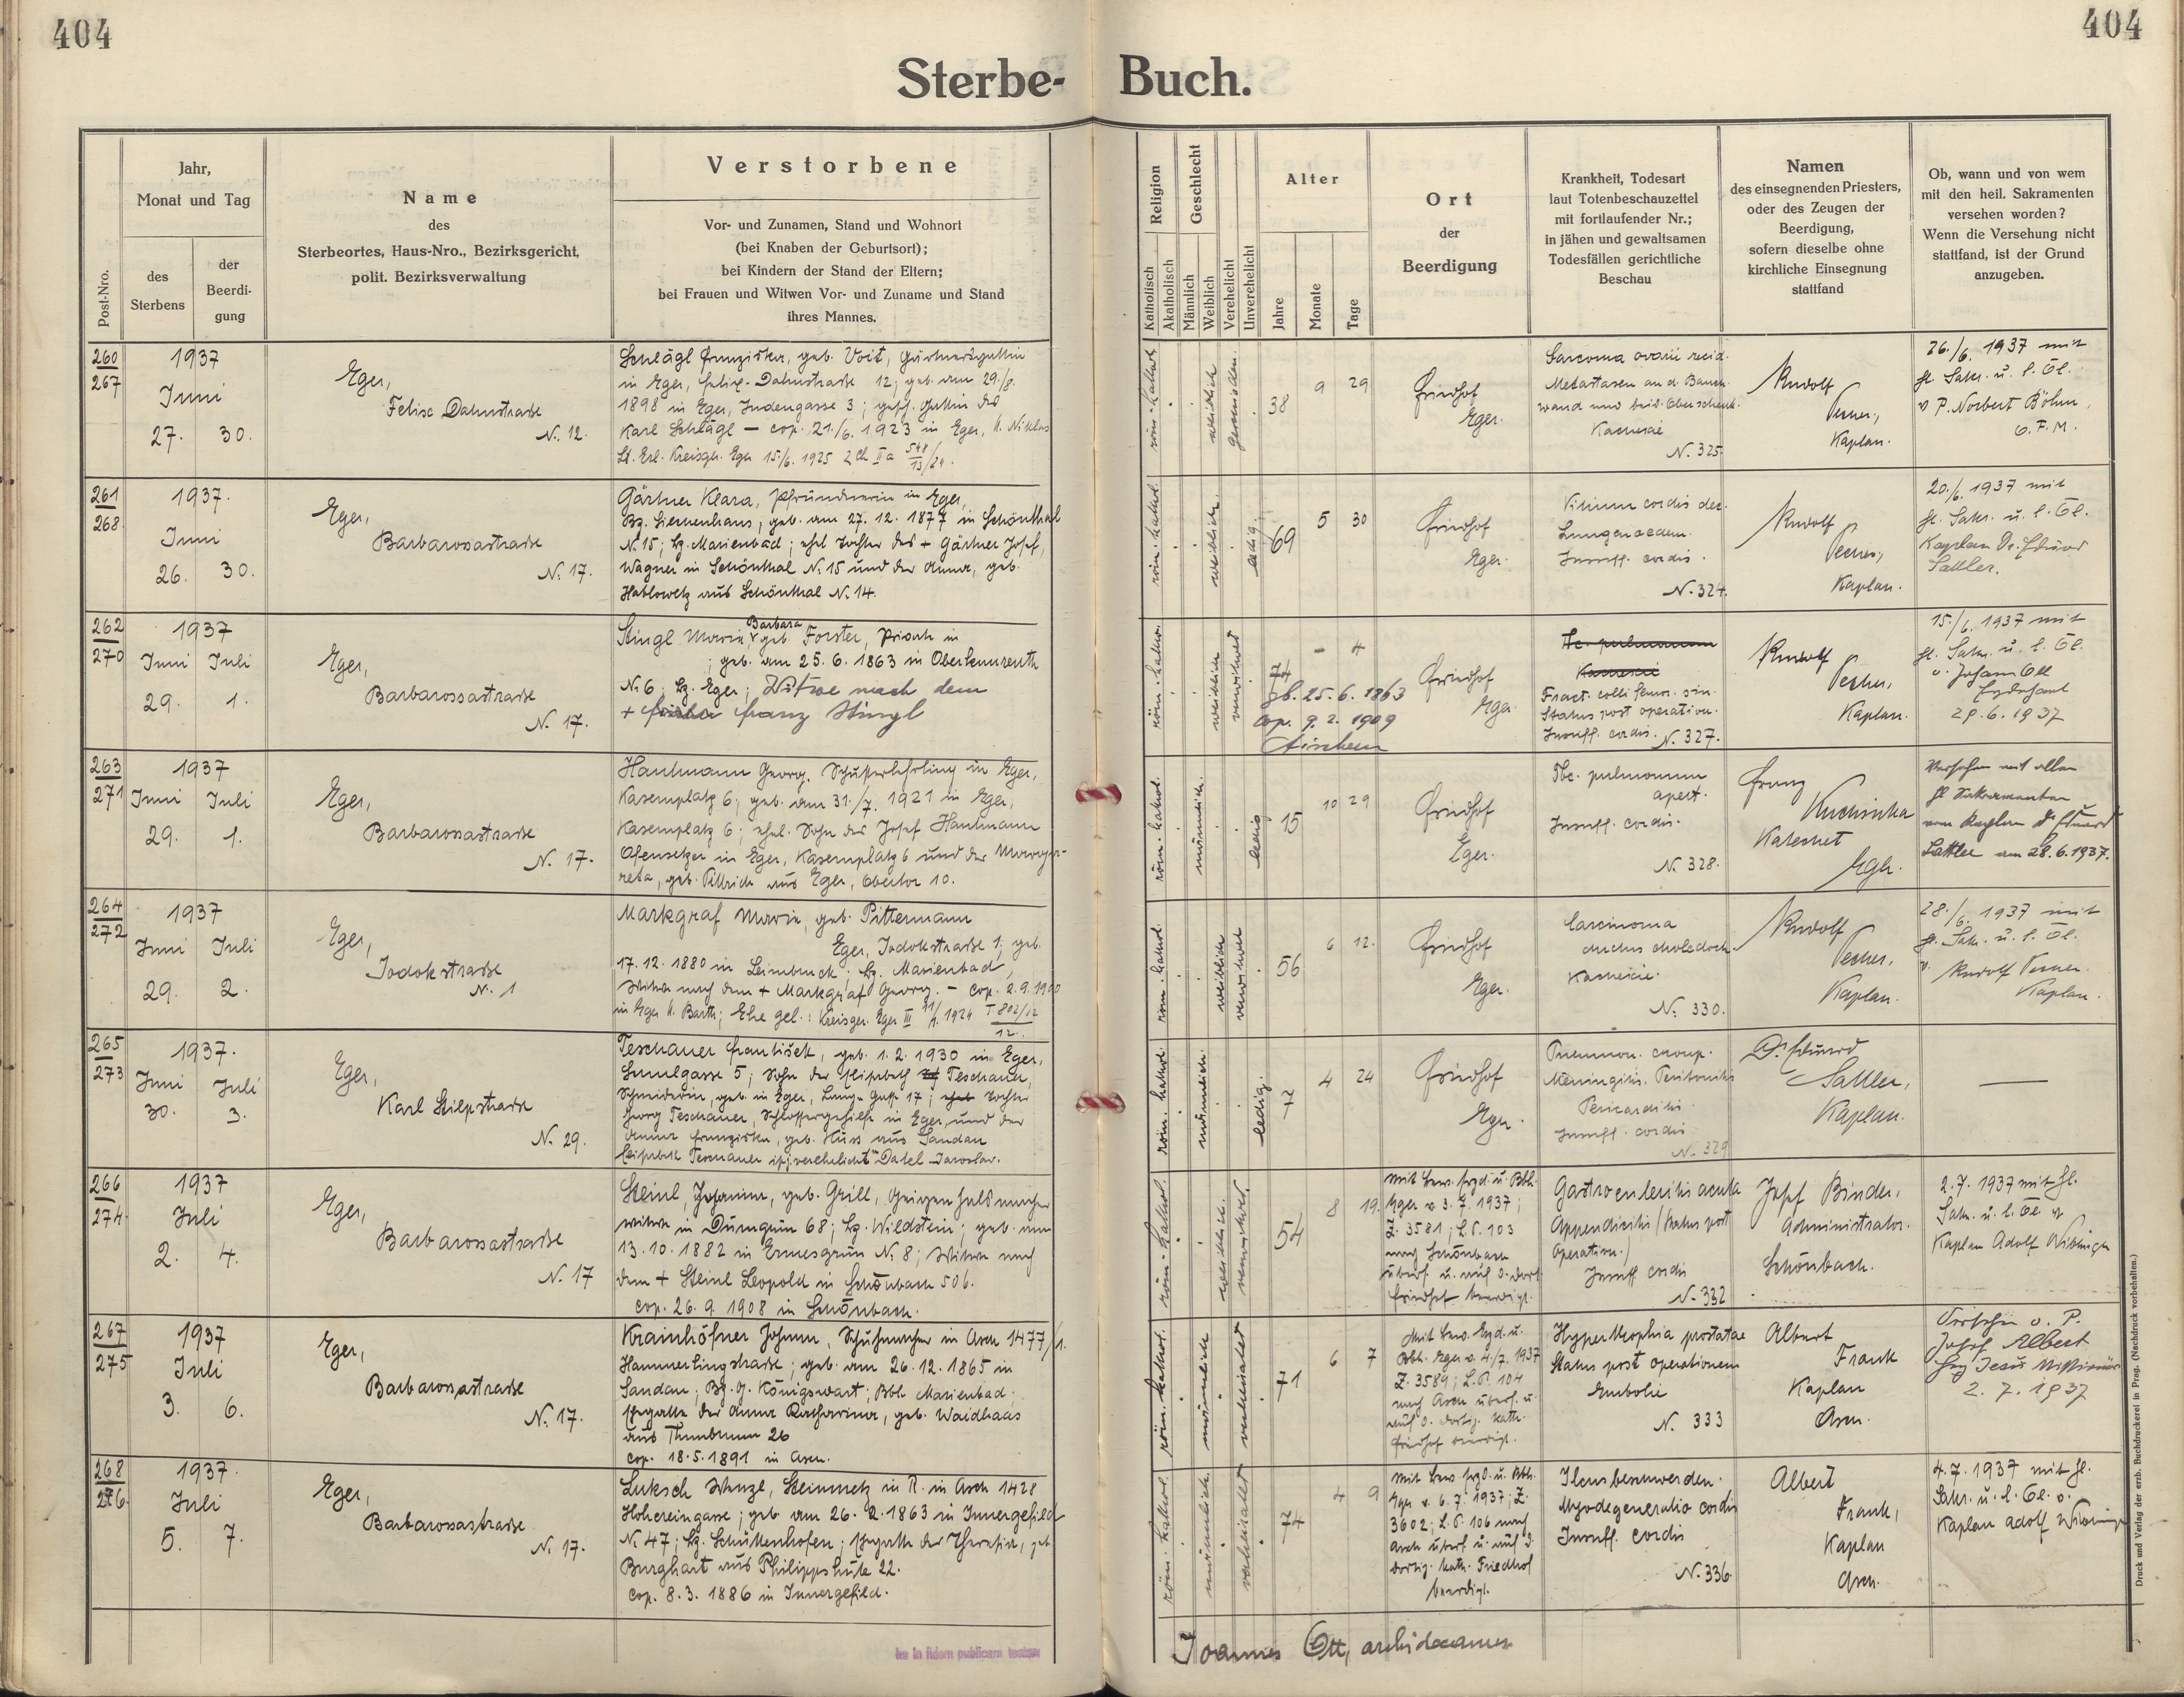 404
404
Sterbe- Buch.
Post-Nro.
Jahr,
Monat und Tag
des
Sterbens
der
Beerdi-
gung
Name
des
Sterbeortes, Haus-Nro., Bezirksgericht,
polit. Bezirksverwaltung
Verstorbene
Vor- und Zunamen, Stand und Wohnort
(bei Knaben der Geburtsort);
bei Kindern der Stand der Eltern;
bei Frauen und Witwen Vor- und Zuname und Stand
ihres Mannes.
Religion
Katholisch
Akatholisch
Geschlecht
Männlich
Weiblich
Verehelicht
Unverehelicht
Alter
Jahre
Monate
Tage
Ort
der
Beerdigung
Krankheit, Todesart
laut Totenbeschauzettel
mit fortlaufender Nr.;
in jähen und gewaltsamen
Todesfällen gerichtliche
Beschau
Namen
des einsegnenden Priesters,
oder des Zeugen der
Beerdigung,
sofern dieselbe ohne
kirchliche Einsegnung
stattfand
Ob, wann und von wem
mit den heil. Sakramenten
versehen worden?
Wenn die Versehung nicht
stattfand, ist der Grund
anzugeben.
260
267
1937
Juni
27. 30.
Eger,
Felix Dahnstraße
N. 12.
Schlägl Franziska, geb. Voit, Gärtnersgattin
in Eger, Felix-Dahnstraße 12; geb. am 29./8.
1898 in Eger, Judengasse 3; gesch. Gattin des
Karl Schlägl – cop. 21./6. 1923 in Eger, St. Niklas
Lt. Erl. Kreisger. Eger 15./6. 1925
röm.-kathol.
weiblich
geschieden.
38 9 29
Friedhof
Eger.
Sarcoma ovarii recid.
Metastasen an d. Bauch-
wand und beid. Oberschenk.
Kachexie
N. 325.
Rudolf
Pecher,
Kaplan.
26./6. 1937 mit
hl. Sakr. u. l. Öl.
v P. Norbert Böhm,
O.F.M.
261
268
1937.
Juni
26. 30.
Eger,
Barbarossastraße
N. 17.
Gärtner Klara, Pfründnerin in Eger,
Bz. Siechenhaus, geb. am 27. 12. 1877 in Schönthal
N. 15; bz. Marienbad; ehel. Tochter des + Gärtner Josef,
Wagner in Schönthal N. 15 und der Anna, geb.
Hablowetz aus Schönthal N. 14.
röm.-kathol.
weiblich.
ledig.
69 5 30
Friedhof
Eger.
Vitium cordis dec.
Lungenoedem.
Insuff. cordis.
N. 324.
Rudolf
Pecher,
Kaplan.
20./6. 1937 mit
hl. Sakr. u. l. Öl.
Kaplan Dr. Eduard
Sattler.
262
270
1937
Juni Juli
29. 1.
Eger,
Barbarossastraße
N. 17.
Barbara
Stingl Maria geb. Forster, Private in
; geb. am 25. 6. 1863 in Oberkunreuth
N. 6; bz. Eger; Witwe nach dem
+ Franz Stingl
röm.-kathol.
weiblich
verwitwet
74 – 4
gb. 25. 6. 1863
cop. 9. 2. 1909
Friedhof
Eger.
Tbc. pulmonum
Kachexie
Fract. colli femor. sin.
Status post operation.
Insuff. cordis. N. 327.
Rudolf
Pecher,
Kaplan.
15./6. 1937 mit
hl. Sakr. u. l. Öl.
v. Johann Ott
Erzdechant
29. 6. 1937
263
271
1937
Juni Juli
29. 1.
Eger,
Barbarossastraße
N. 17.
Hantmann Georg, Schusterlehrling in Eger,
Kasernplatz 6; geb. am 31./7. 1921 in Eger,
Kasernplatz 6; ehel. Sohn des Josef Hantmann
Ofensetzer in Eger, Kasernplatz 6 und der Marga-
reta, geb. Pittrich aus Eger, Obertor 10.
röm.-kathol.
männlich.
ledig
15 10 29
Friedhof
Eger.
Tbc. pulmonum
apert.
Insuff. cordis.
N. 328.
Franz
Katechet
Eger.
Versehen mit allen
hl Sakramenten
vom Kaplan Dr Eduard
Sattler am 28. 6. 1937.
264
272
1937
Juni Juli
29. 2.
Eger,
Jodokstraße
N. 1
Markgraf Maria, geb. Pittermann
Eger, Jodokstraße 1; geb.
17. 12. 1880 in Leimbruck; bz. Marienbad,
Witwe nach dem + Markgraf Georg. – cop. 2. 9. 1900
in Eger St. Barth; Ehe gel.: Kreisger. Eger III
röm.-kathol.
weiblich
verwitwet
56 6 12.
Friedhof
Eger.
Carcinoma
ductus choledoch.
Kachexie.
N. 330.
Rudolf
Pecher,
Kaplan.
28./6. 1937 mit
hl. Sakr. u. l. Öl.
v. Rudolf Pecher
Kaplan.
265
273
1937.
Juni Juli
30. 3.
Eger,
Karl Hilpstraße
N. 29.
Teschauer František, geb. 1. 2. 1930 in Eger,
Saulgasse 5; Sohn der Elisabeth Teschauer,
Schneiderin, geb. in Eger, Lange Gasse 17; Tochter
Georg Teschauer, Schlossergehilfe in Eger, und der
Anna Franziska, geb. Huss aus Sandau
Elisabeth Teschauer ist verehelicht Datel Jaroslav.
röm.-kathol.
männlich
ledig.
7 4 24
Friedhof
Eger.
Pneumon. croup.
Meningitis. Peritonitis
Pericarditis
Insuff. cordis
N. 329
Dr Eduard
Sattler,
Kaplan.
—
266
274.
1937
Juli
2. 4.
Eger,
Barbarossastraße
N. 17
Steinl Johanna, geb. Grill, Geigenhalsmachers-
witwe in Dürngrün 68; bz. Wildstein; geb. am
13. 10. 1882 in Ermesgrün N. 8; Witwe nach
dem + Steinl Leopold in Schönbach 506.
cop. 26. 9. 1908 in Schönbach.
röm.-kathol.
weiblich.
verwitwet.
54 8 19.
mit Bew. Erzd. u. Bbh.
Eger v 3. 7. 1937;
Z. 3581; L.P. 103
nach Schönbach
überf. u. auf d. dort.
Friedhof beerdigt.
Gastroenteritis acuta
Appendicitis (Status post
operation.)
Insuff. cordis
N. 332
Josef Binder,
Administrator.
Schönbach.
2. 7. 1937 mit hl.
Sakr. u. l. Öl v
Kaplan Adolf
267
275
1937
Juli
3. 6.
Eger,
Barbarossastraße
N. 17.
Krainhöfner Johann, Schuhmacher in Asch 1477/1.
Hammerlingstraße; geb. am 26. 12. 1865 in
Sandau; Bz. G. Königswart; Bbh Marienbad;
Ehegatte der Anna Katharina, geb. Waidhaas
aus Thonbrunn 26
cop. 18. 5. 1891 in Asch.
röm.-kathol.
männlich
verheiratet
71 6 7
Mit Bew. Erzd. u.
Bbh. Eger v. 4./7. 1937
Z. 3589; L.P. 104
nach Asch überf. u.
auf d. dortig. kath.
Friedhof beerdigt.
Hypertrophia prostatae
Status post operationem
Embolie
N. 333
Albert
Frank
Kaplan
Asch.
Versehen v. P.
Josef Albert
Herz Jesus Missionär
2. 7. 1937
268
276
1937.
Juli
5. 7.
Eger,
Barbarossastraße
N. 17.
Luksch Wenzl, Steinmetz in R. in Asch 1428
Hohereingasse; geb. am 26. 2. 1863 in Innergefield
N. 47; bz. Schüttenhofen; Ehegatte der Theresia, geb.
Burghart aus Philippshütte 22.
cop. 8. 3. 1886 in Innergefield.
röm.-kathol.
männlich.
verheiratet
74 4 9
mit Bew. Erzd. u. Bbh.
Eger v. 6. 7. 1937; Z.
3602; L.P. 106 nach
Asch überf. u. auf d.
dortig. kath. Friedhof
beerdigt.
Ileusbeschwerden.
Myodegeneratio cordis
Insuff. cordis
N. 336
Albert
Frank,
Kaplan
Asch.
4. 7. 1937 mit hl.
Sakr. u. l. Öl. v.
Kaplan Adolf
in fidem publicam
Joannes Ott, archidecanus
Druck und Verlag der erzb. Buchdruckerei in Prag. (Nachdruck vorbehalten.)